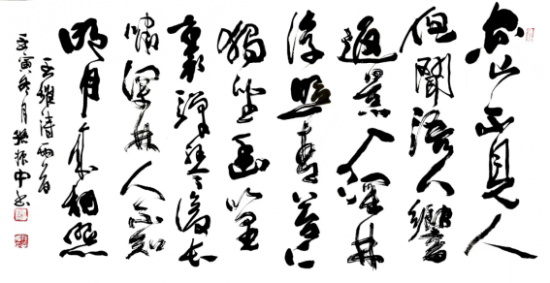 空山不見人
但聞語人響
返景入深林
復照青苔上
獨坐幽篁
裏彈琴復長
嘯深林人不知
明月來相照
王維詩兩首
壬寅冬月 振中书